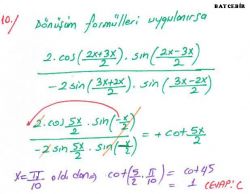 BAYCEBİR
10./ Dönüşüm formülleri uygulanırsa
2.cos(2x+3x/2).sin(2x-3x/2)
-2 sin(3x+2x/2).sin(3x-2x/2)
2.cos 5x/2 . sin(-x/2)
-2 sin 5x/2 . sin(-x/2)
= + cot 5x/2
x = π/10 olduğundan cot(5/2 . π/10) = cot 45
1 CEVAP: C